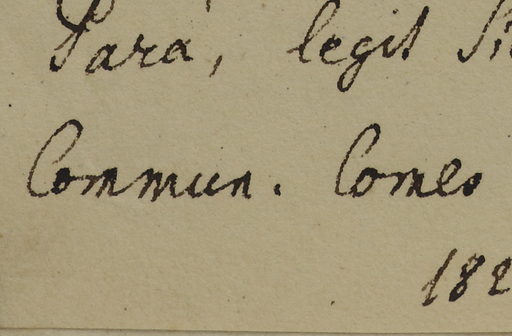 Para, legit
Commun. Comes
182